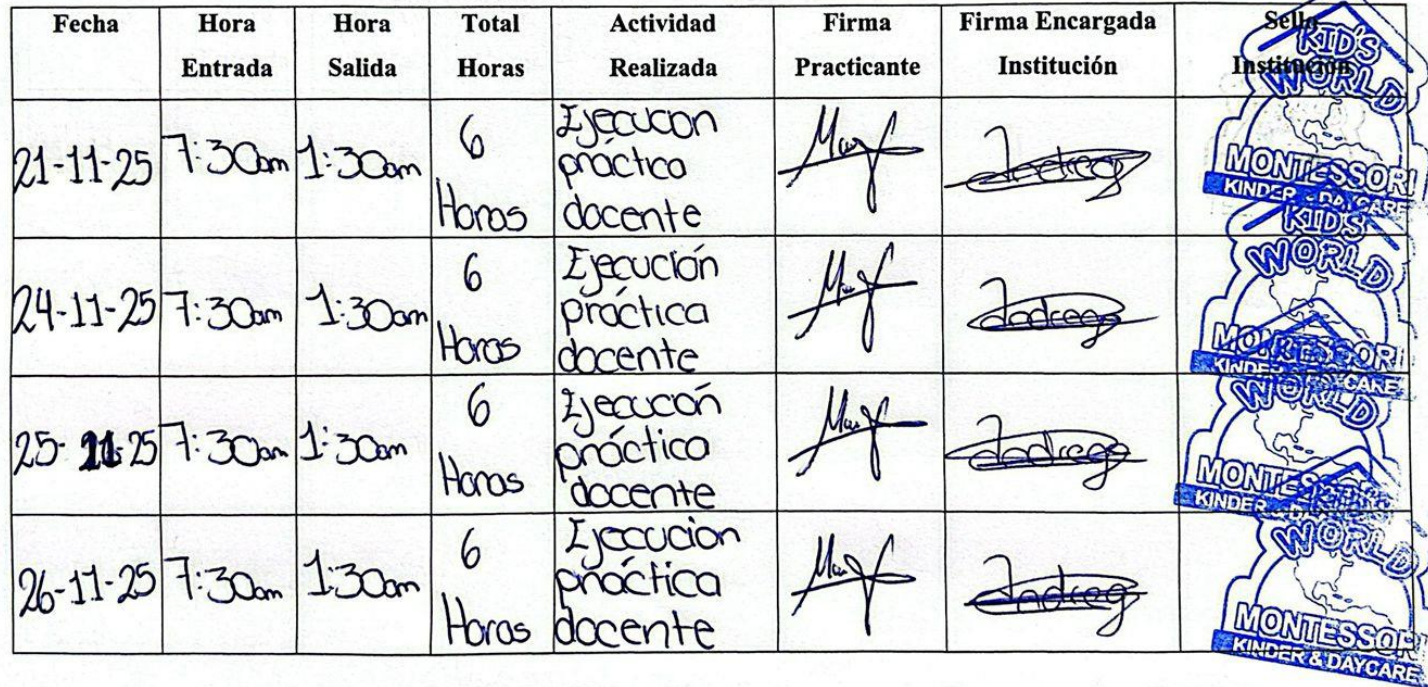 Fecha Hora Entrada Hora Salida Total Horas Actividad Realizada Firma Practicante Firma Encargada Institución Sello Institución
21-11-25 7:30am 1:30am 6 Horas Ejecucon práctica docente
KID'S WORLD
MONTESSORI
KINDER & DAYCARE
24-11-25 7:30am 1:30am 6 Horas Ejecución práctica docente
KID'S WORLD
MONTESSORI
KINDER & DAYCARE
25-11-25 7:30am 1:30am 6 Horas Ejecucón práctica docente
WORLD
MONTESSORI
KINDER & DAYCARE
26-11-25 7:30am 1:30am 6 Horas Ejecución práctica docente
WORLD
MONTESSORI
KINDER & DAYCARE